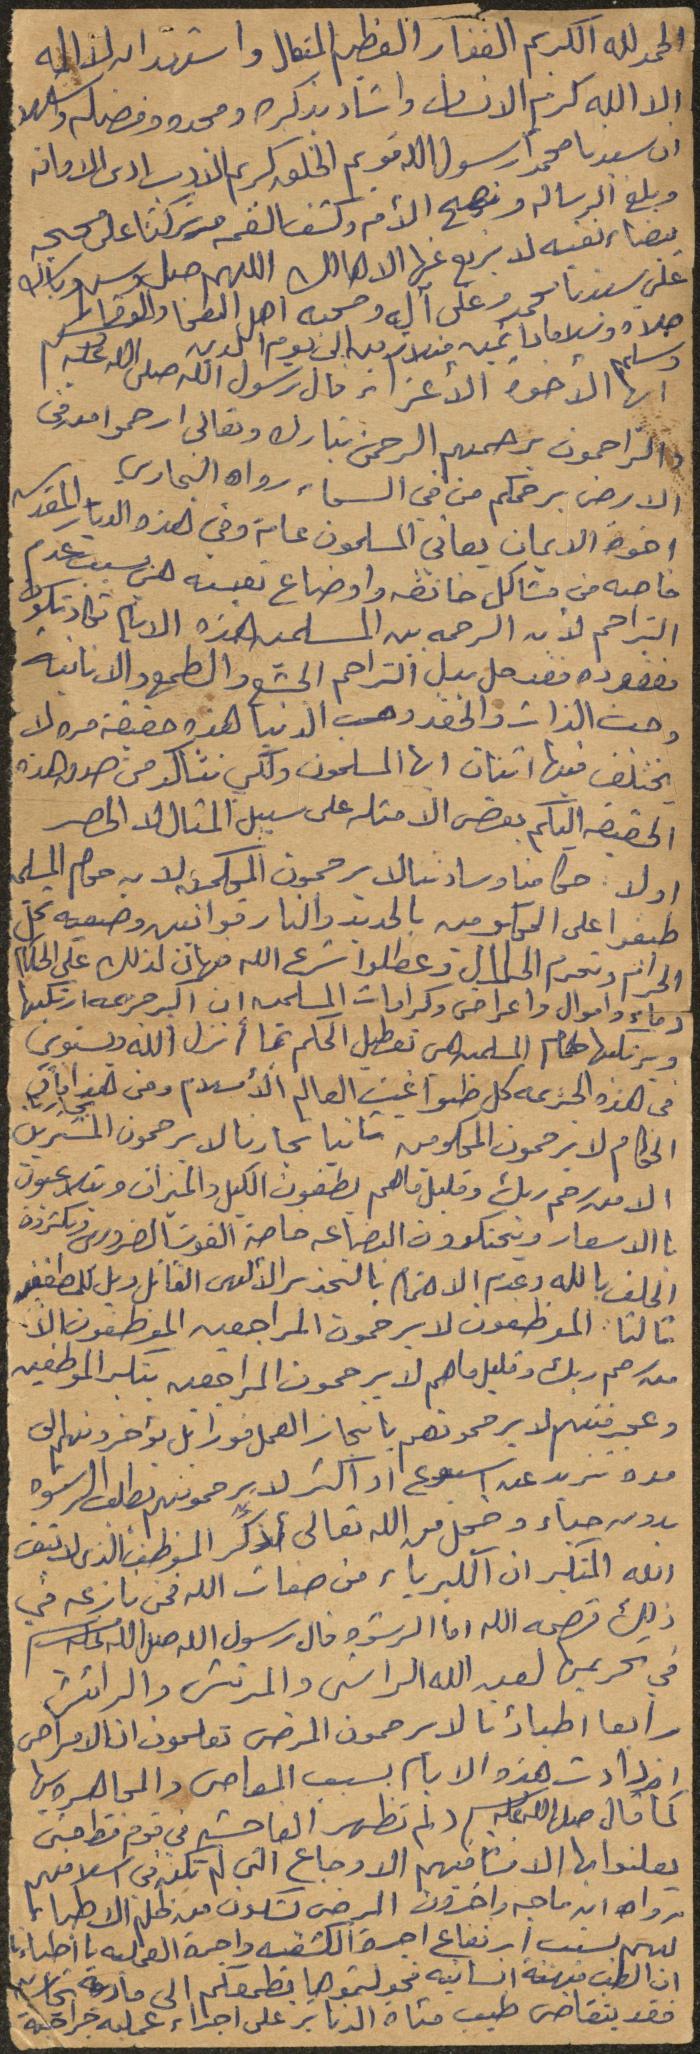 الحمد لله الكريم الغفار العظيم المتعال واشهد ان لا اله
الا الله كرم الانسان واشاد بذكره ومجده وفضله واشهد
ان سيدنا محمدا رسول الله قويم الخلق كريم الذي ادى الامانه
وبلغ الرسالة ونصح الأمه وكشف الغمه وتركنا على محجه
بيضاء نقيه لا يزيغ عنها الا هالك اللهم صل وسلم وبارك
على سيدنا محمد وعلى آله وصحبه اهل الصفا والوفا
صلاه وسلاما دائمين متلازمين الى يوم الدين
ايها الأخوة الأعزاء قال رسول الله صلى الله عليه وسلم
الراحمون يرحمهم الرحمن تبارك وتعالى ارحموا من في
الارض يرحمكم من في السماء رواه البخاري
اخوة الايمان يعاني المسلمون عامة وفي هذه الديار المقدسه
خاصه من مشاكل خانقه واوضاع تعيسه هي بسبب عدم
التراحم لأن الرحمه بين المسلمين هذه الايام تكاد تكون
مفقوده فقد حل بدل التراحم الجشع والطمع والانانيه
وحب الذات والحقد وحب الدنيا هذه حقيقة مره لا
يختلف فيها اثنان ايها المسلمون ولكي نتأكد من صدق هذه
الحقيقه اليكم بعض الامثله على سبيل المثال لا الحصر
اولا: حكامنا وساداتنا لا يرحمون المحكومين لان حكام المسلمين
طبقوا على المحكومين بالحديد والنار قوانين وضعيه تحل
الحرام وتحرم الحلال وعطلوا شرع الله فهانت لذلك على الحكام
دماء واموال واعراض وكرامات المسلمين ان اكبر جريمه ارتكبها
ويرتكبها حكام المسلمين هي تعطيل الحكم بما أنزل الله ويستوي
في هذه الجريمه كل طواغيت العالم الأسلامي ومن هنا يأتي
الحكام لا يرحمون المحكومين ثانيا تجارنا لا يرحمون المشترين
الا من رحم ربك وقليل ما هم يطففون الكيل والميزان ويتلاعبون
بالاسعار ويحتكرون البضاعه خاصة القوت الضروري ويكثرون
الحلف بالله وعدم الاهتمام بالتحذير الألهي القائل ويل للمطففين
ثالثا: الموظفون لا يرحمون المراجعين الموظفون الا
من رحم ربك وقليل ماهم لا يرحمون المراجعين بتكبر الموظفين
وعجرفتهم لا يرحمونهم بانجاز العمل فورا بل يؤخرونهم الى
مده تزيد عن اسبوع او اكثر لا يرحمونهم بطلب الرشوه
بدون حياء وخجل من الله تعالى أذكر الموظف الذي لا يتقي
الله المتكبر ان الكبرياء من صفات الله فمن نازعه في
ذلك قصمه الله اما الرشوه قال رسول الله صلى الله عليه وسلم
في تحريمها لعن الله الراشي والمرتشي والرائش
رابعا اطباؤنا لا يرحمون المرضى تعلمون ان الامراض
ازدادت هذه الايام بسبب المعاصي والمجاهره بها
كما قال صلى الله عليه وسلم لم تظهر الفاحشه في قوم قط حتى
يعلنوا بها الا فشا فيهم الاوجاع التي لم تكن في اسلافهم
رواه ابن ماجه واخرون المرضى يشكون من ظلم الاطباء
لهم بسبب ارتفاع اجرة الكشفيه واجرة العمليه يا اطباءنا
ان الطب مهنة انسانيه فحولتموها بطمعكم الى مادية تجاريه
فقد يتقاضى طبيب مئات الدنانير على اجراء عمليه جراحية